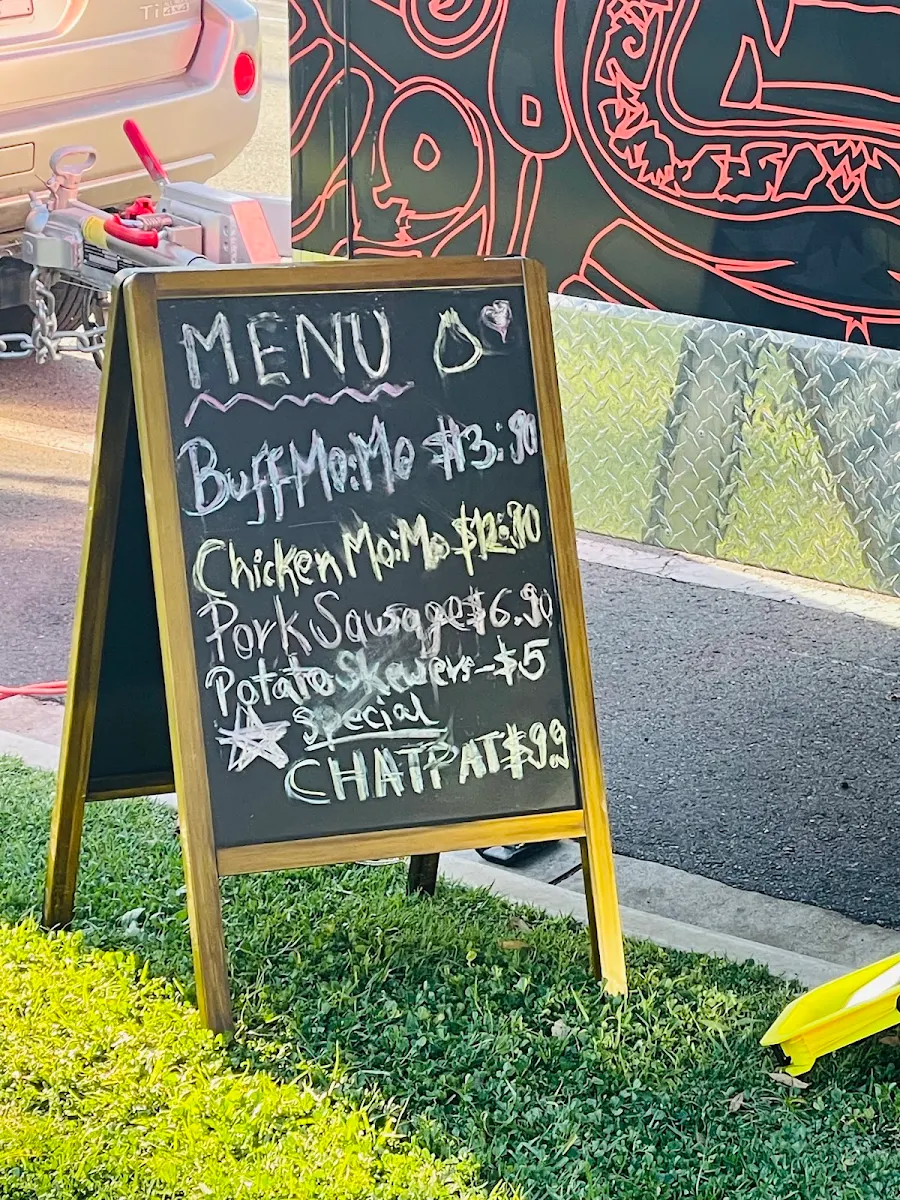 MENU
Buff Mo:Mo $13:90
Chicken Mo:Mo $12:90
Pork Sausage $6.90
Potato Skewers - $5
Special
CHATPAT $9.9
Ti